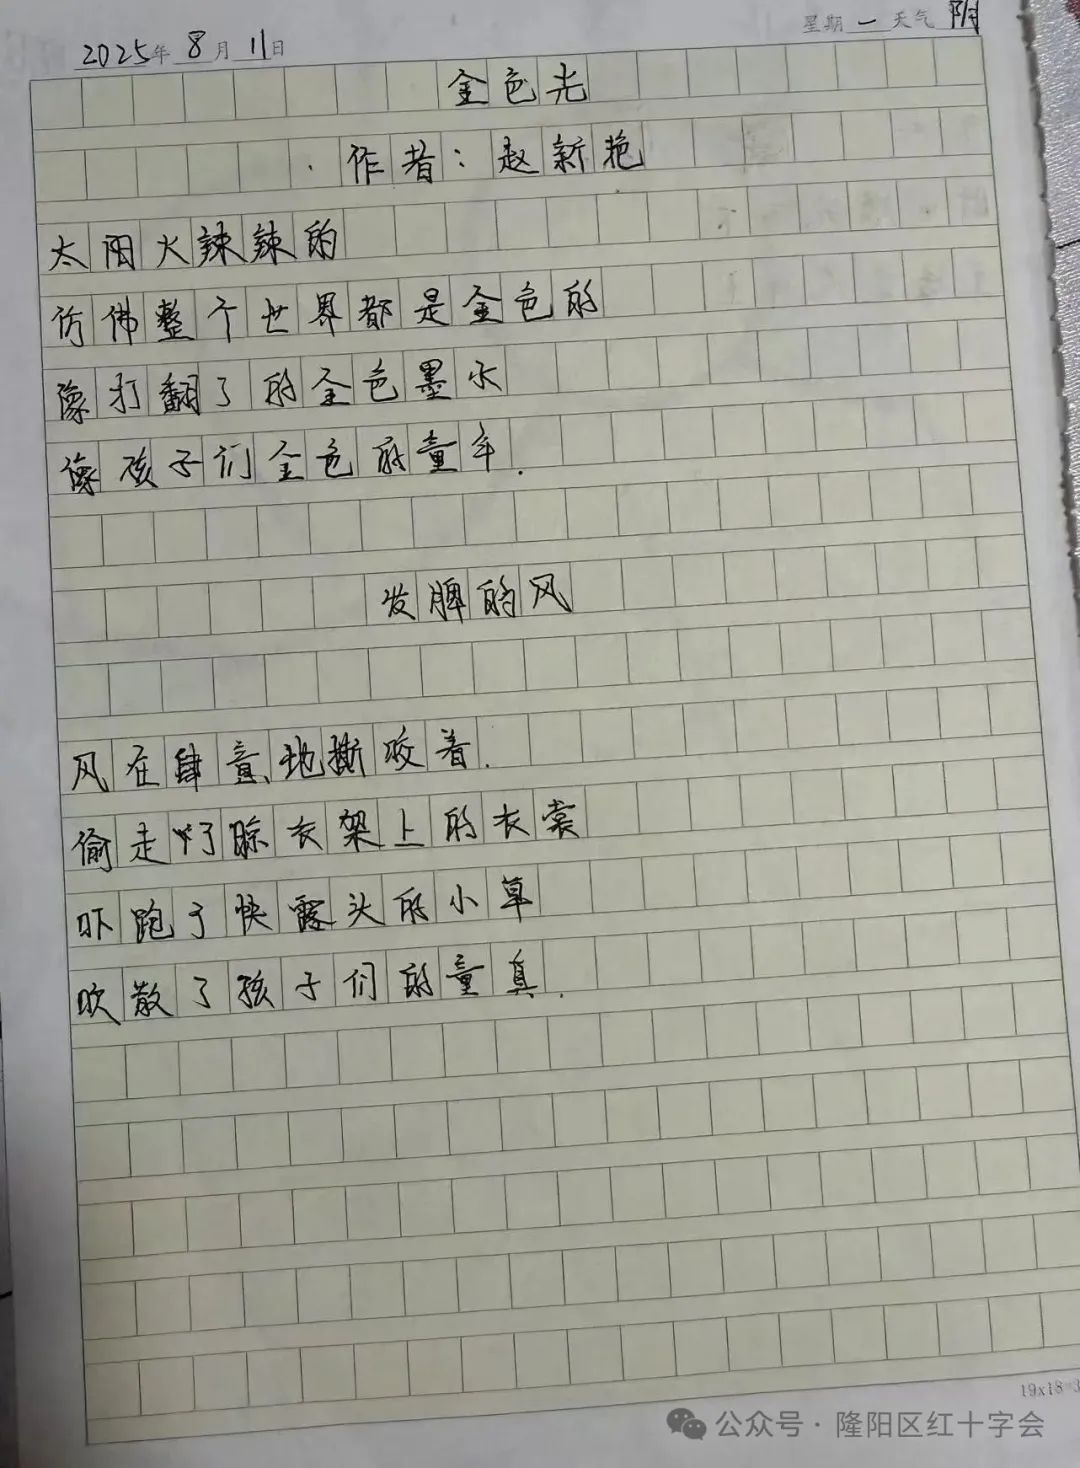 2025年 8月 11日 星期 一 天气 阴
金色光
作者：赵新艳
太阳火辣辣的
仿佛整个世界都是金色的
像打翻了的金色墨水
像孩子们金色的童年.
发脾的风
风在肆意地撕咬着.
偷走了晾衣架上的衣裳
吓跑了快露头的小草
吹散了孩子们的童真.
公众号·隆阳区红十字会